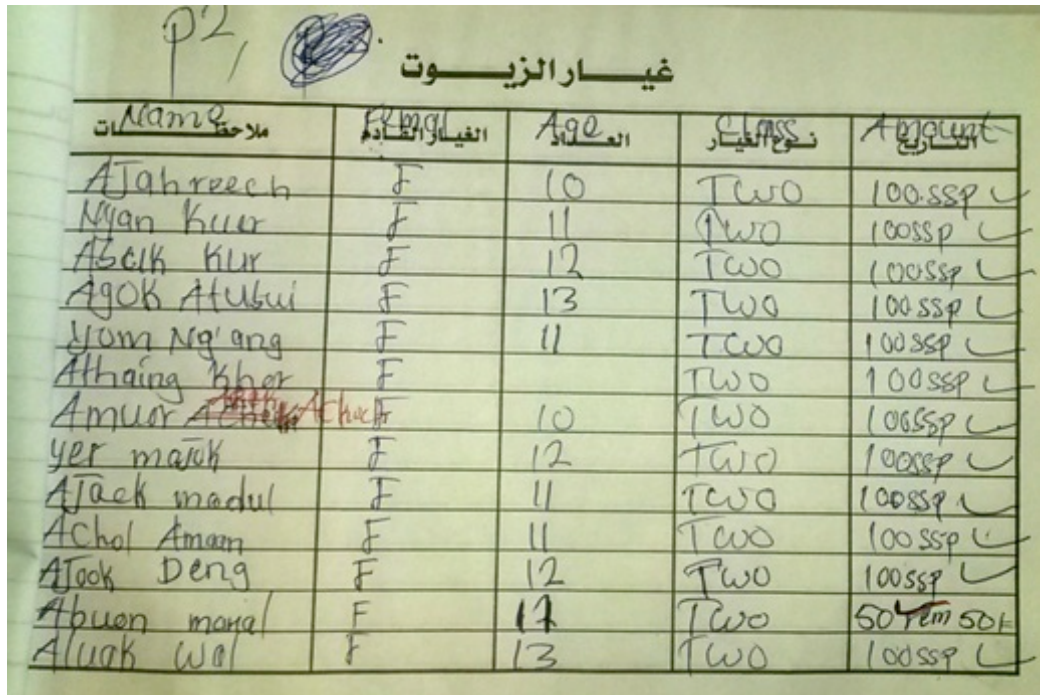 P2,
غيار الزيوت
ملاحظات الغيار القادم العداد نوع الغيار التاريخ
Name Femal Age Class Amount
AJahreech F 10 Two 100.SSP
Nyan Kuer F 11 Two 100SSP
Abeik Kur F 12 Two 100SSP
Agok Atubui F 13 Two 100SSP
Yom Ng'ang F 11 Two 100SSP
Athaing Kher F Two 100SSP
Amuor Achok F 10 Two 100SSP
yer majok F 12 Two 100SSP
AJaek madul F 11 Two 100SSP
AChol Amaan F 11 Two 100SSP
AJook Deng F 12 Two 100SSP
Abuon manal F Two 50 rem 50
Aluak Wal F 13 Two 100SSP